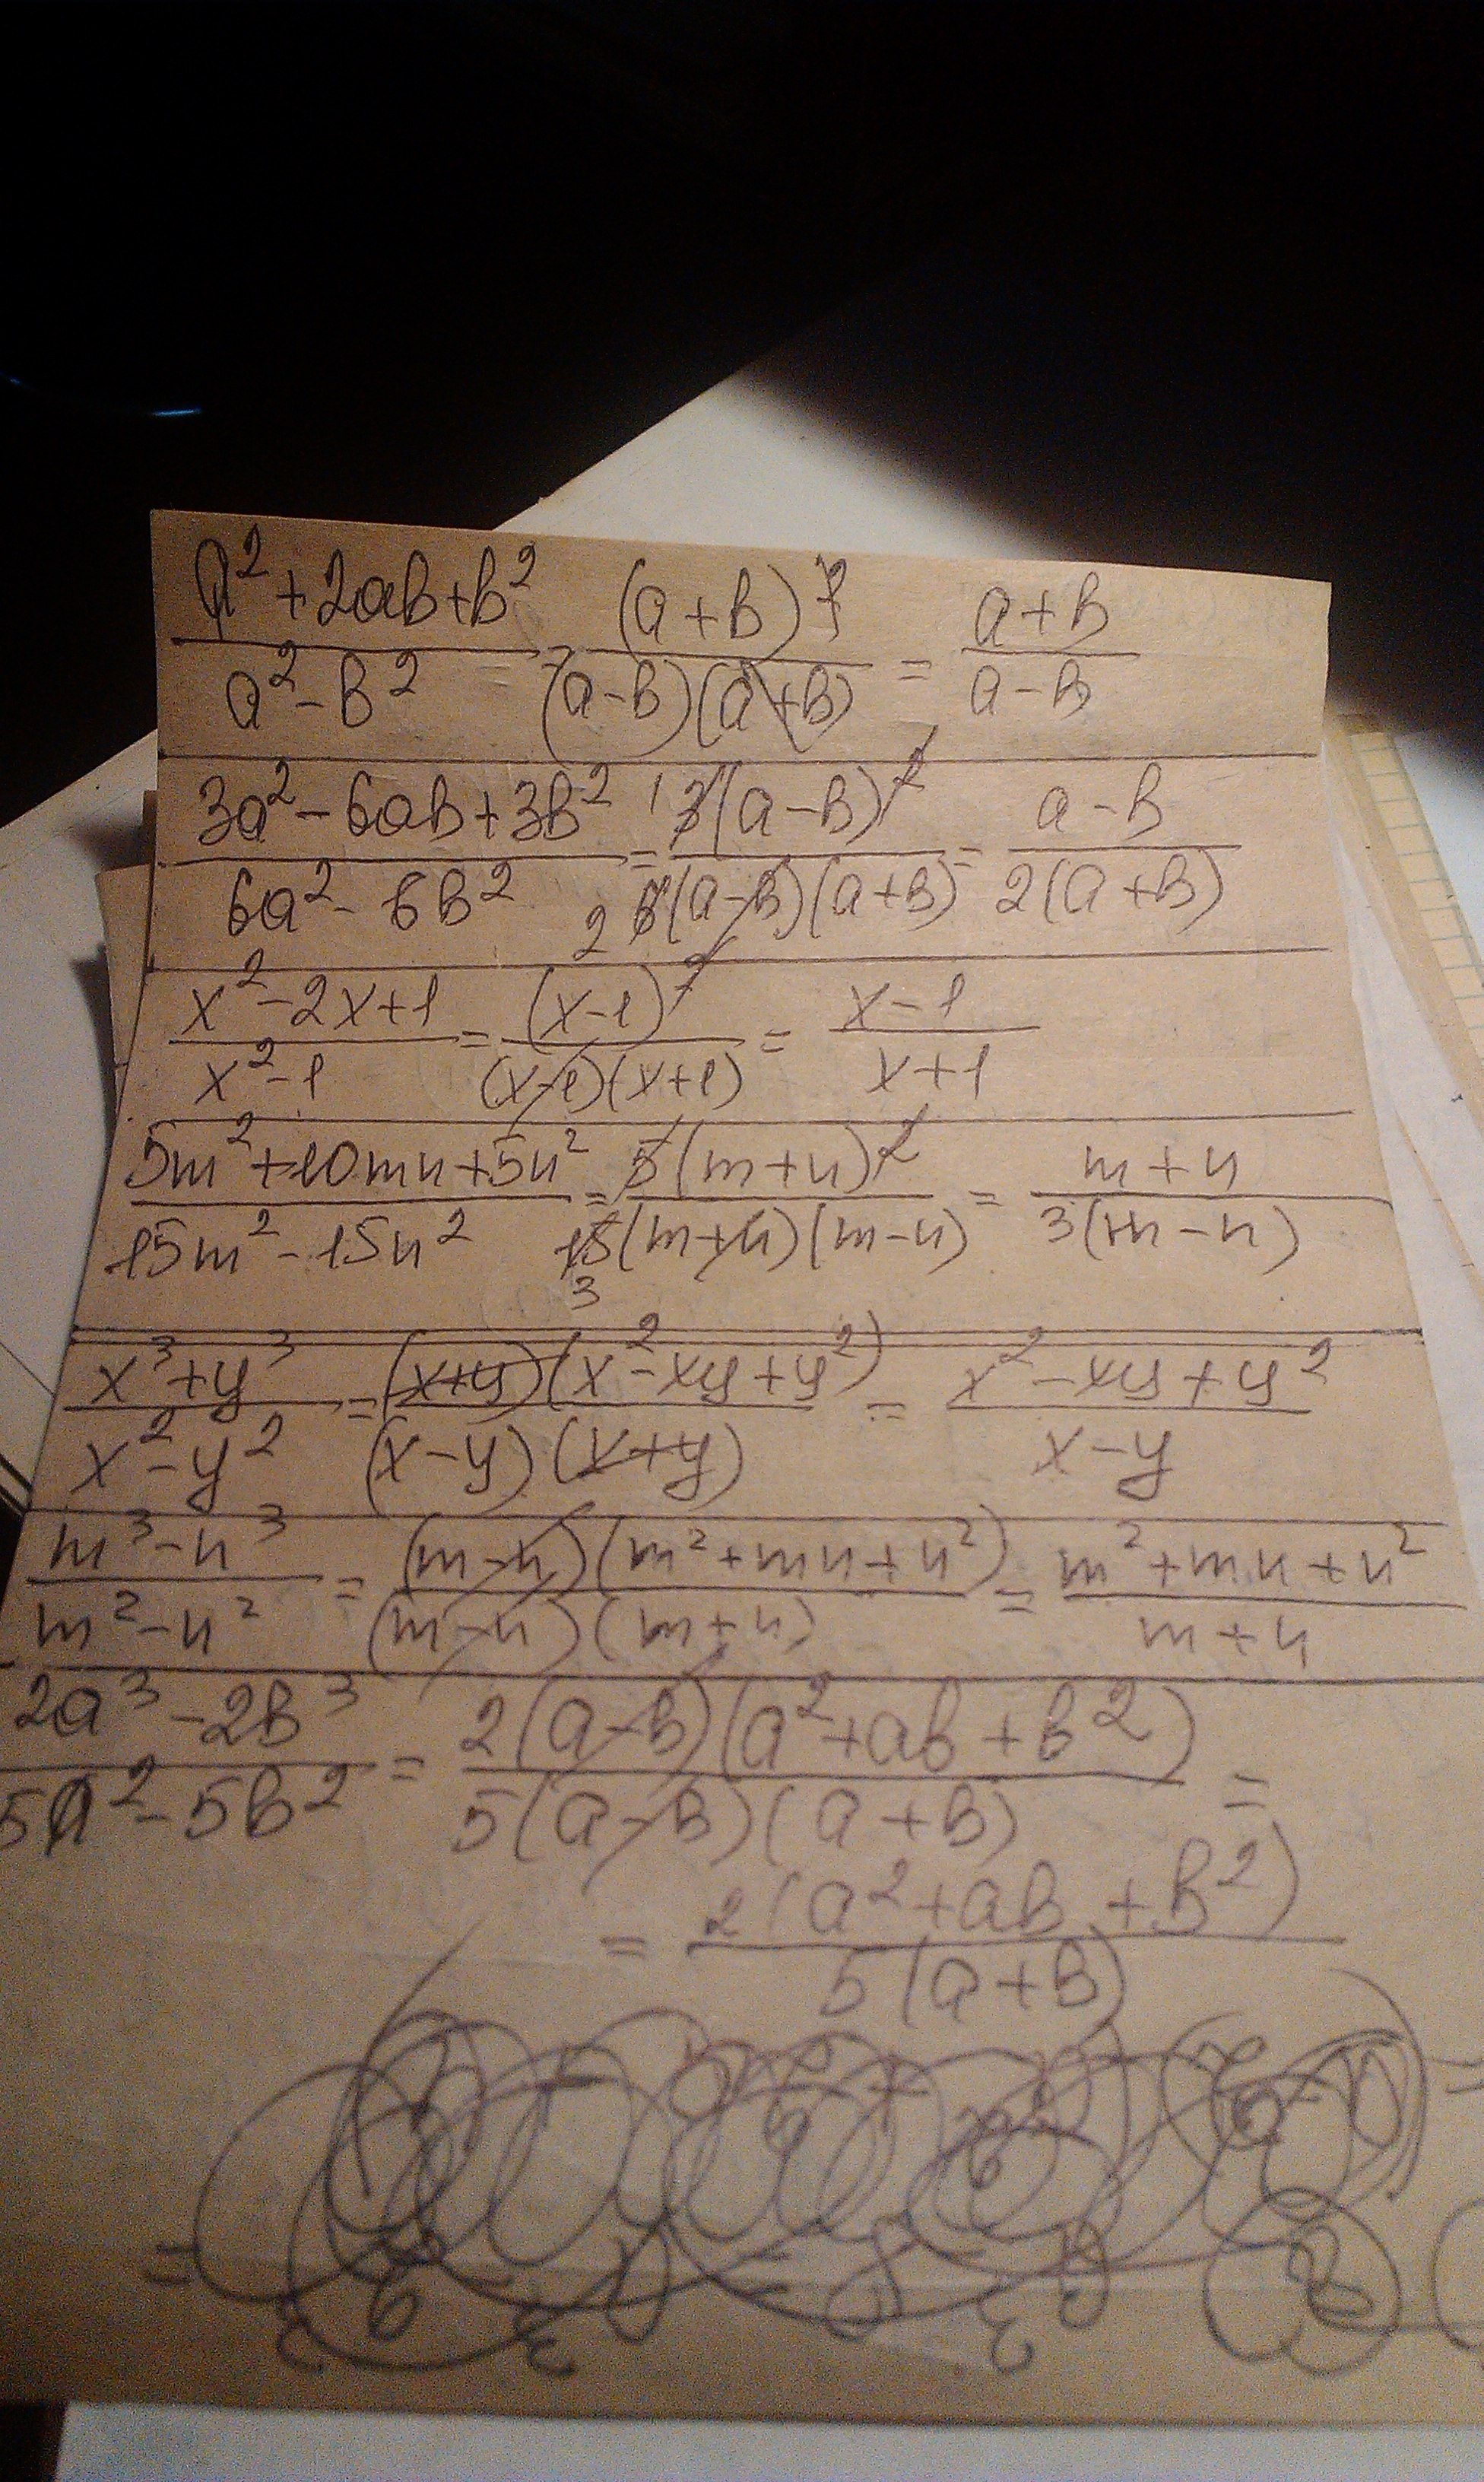 (a² + 2ab + b²)/(a² - b²) = (a + b)²/((a - b)(a + b)) = (a + b)/(a - b)
(3a² - 6ab + 3b²)/(6a² - 6b²) = 3(a - b)²/(6(a - b)(a + b)) = (a - b)/(2(a + b))
(x² - 2x + 1)/(x² - 1) = (x - 1)²/((x - 1)(x + 1)) = (x - 1)/(x + 1)
(5m² + 10mn + 5n²)/(15m² - 15n²) = 5(m + n)²/(15(m + n)(m - n)) = (m + n)/(3(m - n))
(x³ + y³)/(x² - y²) = (x + y)(x² - xy + y²)/((x - y)(x + y)) = (x² - xy + y²)/(x - y)
(m³ - n³)/(m² - n²) = (m - n)(m² + mn + n²)/((m - n)(m + n)) = (m² + mn + n²)/(m + n)
(2a³ - 2b³)/(5a² - 5b²) = 2(a - b)(a² + ab + b²)/(5(a - b)(a + b)) =
= 2(a² + ab + b²)/(5(a + b))